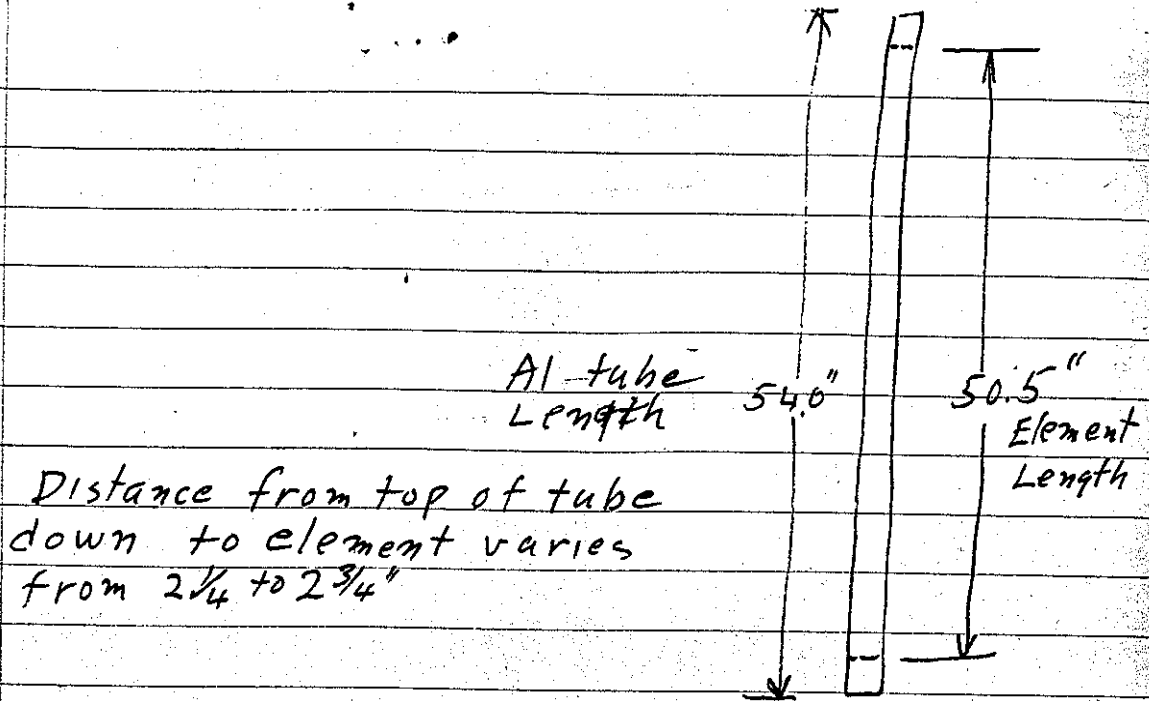 Al tube
Length
54.0"
50.5"
Element
Length
Distance from top of tube
down to element varies
from 2 1/4 to 2 3/4"